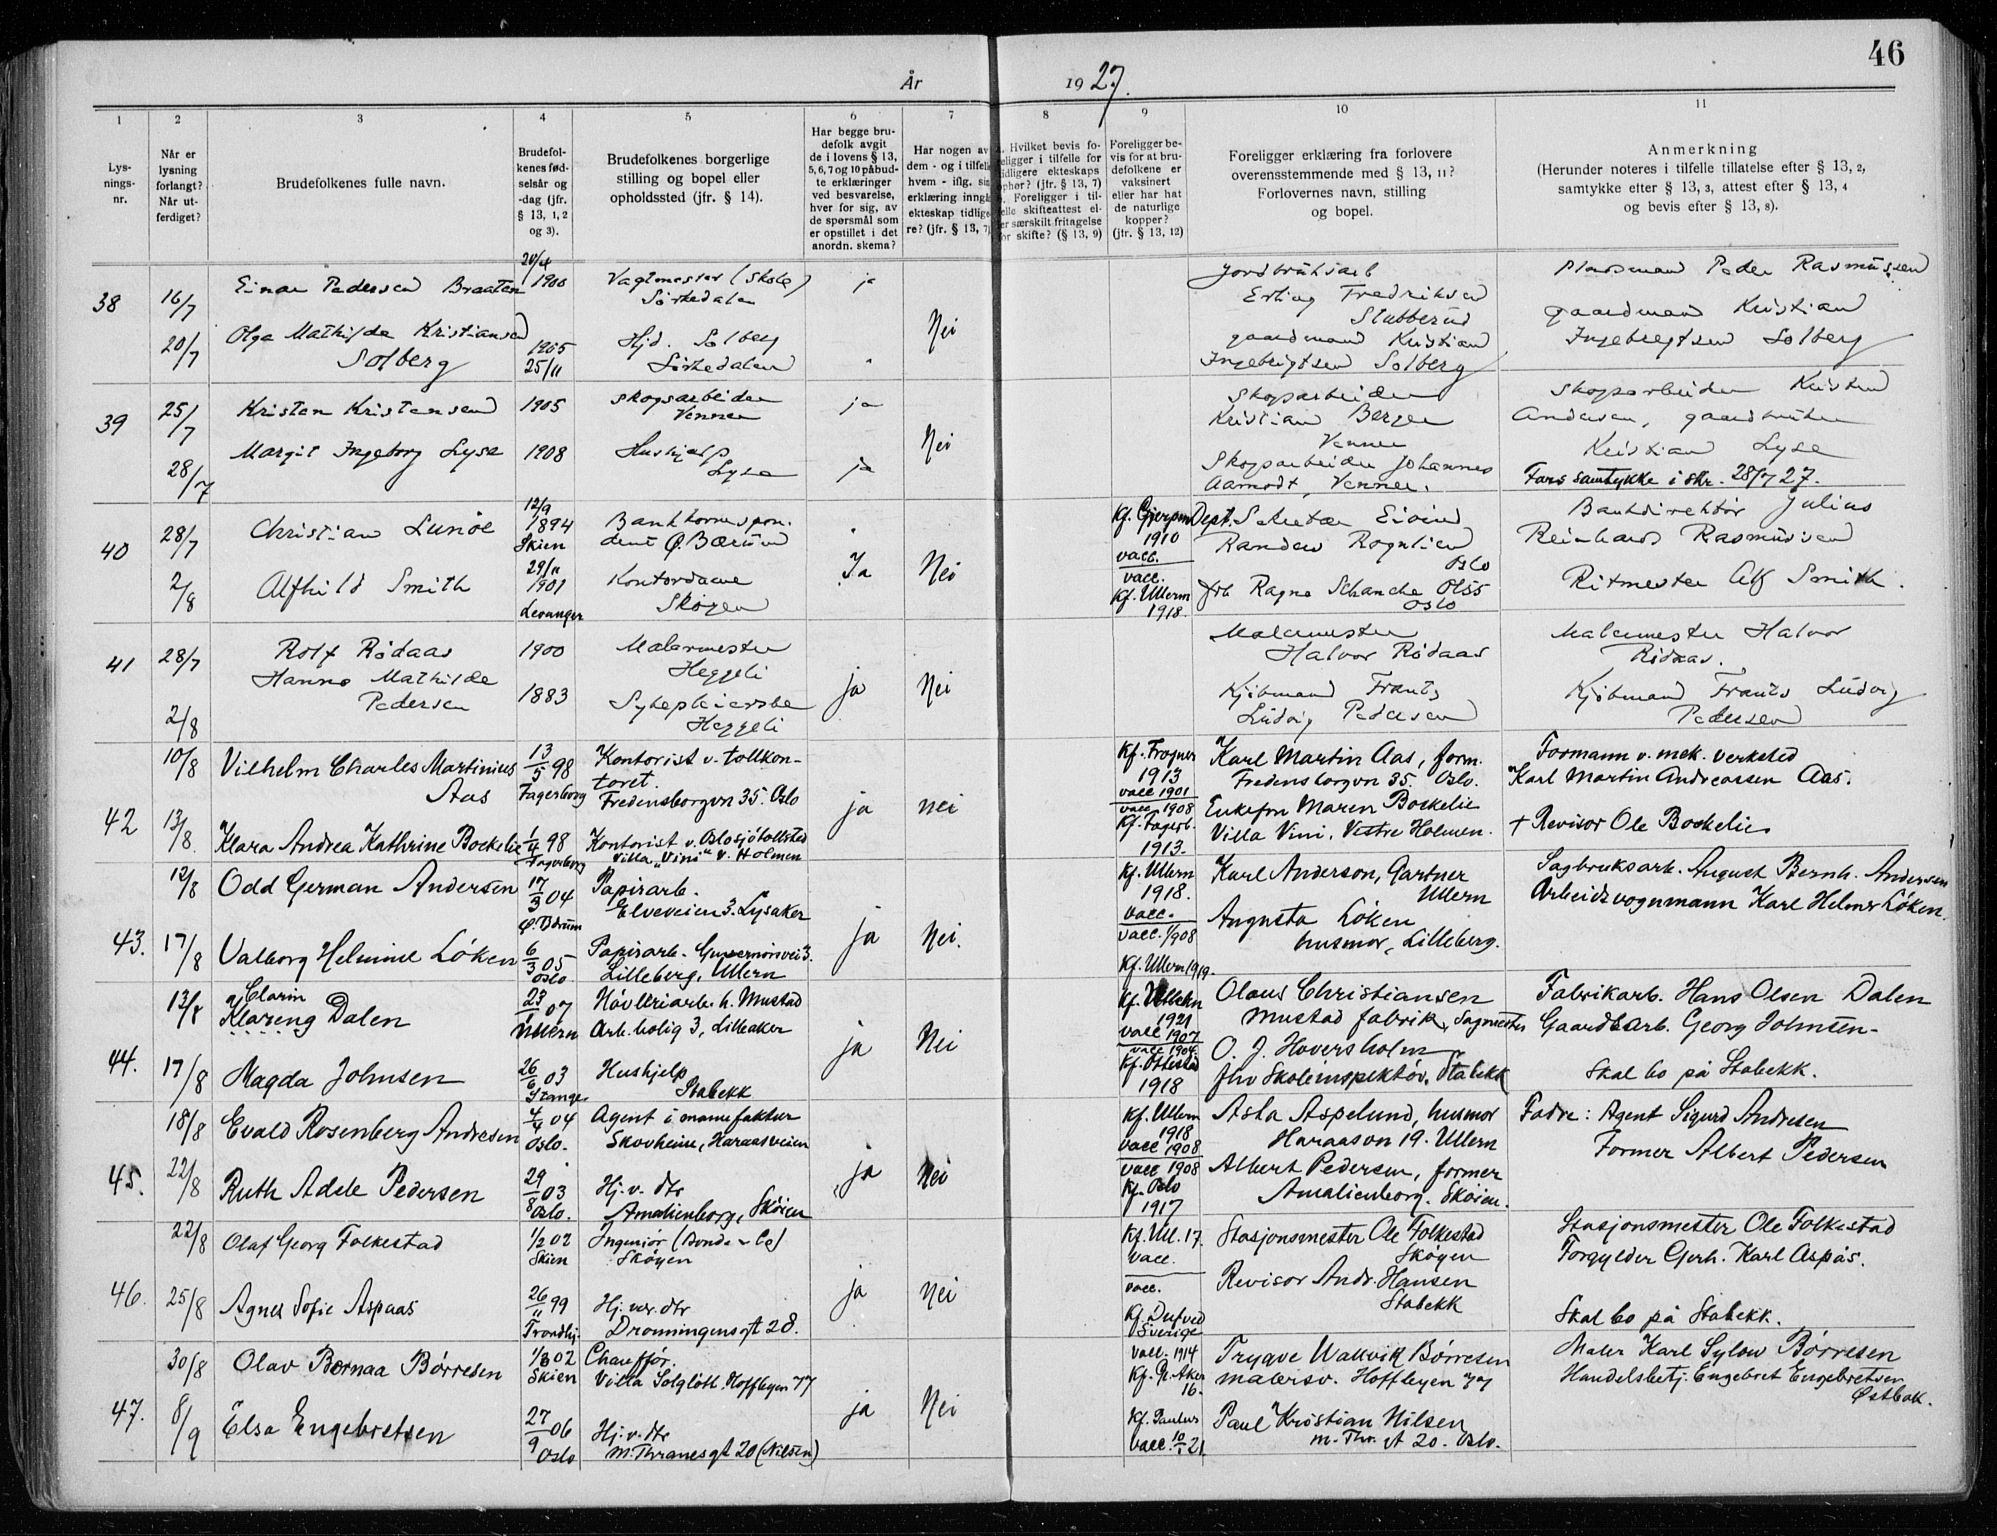 46
År 1927.
1 2 3 4 5 6 7 8 9 10 11
Lys-
nings-
nr.
Når er
lysning
forlangt?
Når ut-
ferdiget?
Brudefolkenes fulle navn.
Brudefol-
kenes fød-
selsår og
-dag (jfr.
§ 13, 1, 2
og 3).
Brudefolkenes borgerlige
stilling og bopel eller
opholdssted (jfr. § 14).
Har begge bru-
defolk avgit
de i lovens § 13,
5, 6, 7 og 10 påbud-
te erklæringer
ved besvarelse,
hver for sig, av
de spørsmål som
er opstillet i det
anordn. skema?
Har nogen av
dem - og i tilfelle
hvem - iflg. sin
erklæring inngå
ekteskap tidlige-
re? (jfr. § 13, 7)
Hvilket bevis fo-
religger i tilfelle for
tidligere ekteskaps
ophør? (jfr. § 13, 7)
Foreligger i til-
felle skifteattest el-
er særskilt fritagelse
for skifte? (§ 13, 9)
Foreligger be-
vis for at bru-
defolkene er
vaksinert
eller har hat
de naturlige
kopper?
(jfr. § 13, 12)
Foreligger erklæring fra forlovere
overensstemmende med § 13, 11?
Forlovernes navn, stilling
og bopel.
Anmerkning
(Herunder noteres i tilfelle tillatelse efter § 13, 2,
samtykke efter § 13, 3, attest efter § 13, 4
og bevis efter § 13, 8).
38
16/7
20/7
Einar Pedersen Braaten
Olga Mathilde Kristiansen
Solberg
20/4
1900
1905
25/11
Vagtmester (Skole)
Sørkedalen
Hjd. Solberg
Sørkedalen
ja
Nei
Jordbruksarb
Erling Fredriksen
Stubberud
gaardmand Kristian
Ingebrigtsen Solberg
Plassmand Peder Rasmussen
gaardmand Kristian
Ingebregtsen Solberg
39
25/7
28/7
Kristen Kristensen
Margit Ingeborg Lysa
1905
1908
Skogsarbeider
Venner
Hushjelp
Lysa
ja
ja
Nei
Skogsarbeider
Kristian Berger
Venner
Skogsarbeider Johannes
Aamodt, Venner.
Skogsarbeider Kristen
Andersen, gaardbruker
Kristian Lysa
Fars samtykke i skr. 28/7 27.
40
28/7
2/8
Christian Lunöe
Alfhild Smith
12/9
1894
Skien
29/11
1901
Levanger
Bankkorrespon-
dent Ø. Bærum
Kontordame
Skøyen
Ja
Nei
Kf. Gjerpen
1910
vacc.
vacc.
Kf. Ullern
1918.
Dept. Sekretær Eivind
Randers Rognlien
Oslo
frk Ragna Schanche Olss
Oslo
Bankdirektør Julius
Reinhard Rasmussen
Ritmester Alf Smith.
41
28/7
2/8
Rolf Rødaas
Hanna Mathilde
Pedersen
1900
1883
Malermester
Heggeli
Sykepleierske
Heggeli
ja
Nei
Malermester
Halvor Rødaas
Kjøbmand Frants
Ludvig Pedersen
Malermester Halvor
Rødaas.
Kjøbmand Frants Ludvig
Pedersen
42
10/8
13/8.
Vilhelm Charles Martinius
Aas
Klara Andrea Kathrine Bockelie
13/5 98
Fagerborg
1/4 98
Fagerborg
Kontorist v. tollkon-
toret.
Fredensborgvn 35. Oslo
Kontorist v. Oslo sjötollsted
Villa „Vini" V. Holmen
ja
nei
Kf. Frogner
1913
vacc 1901
vacc 1908
Kf. Fagerb.
1913.
Karl Martin Aas, form.
Fredensborgvn 35. Oslo.
Enkefru Maren Bockelie
Villa Vini, Vestre Holmen.
Formann v. mek. verksted
Karl Martin Andreassen Aas.
+ Revisor Ole Bockelie
43.
12/8
17/8
Odd German Andersen
Valborg Helmine Löken
17/3 04
Ø. Bærum
6/3 05
Oslo
Papirarb.
Elveveien 3. Lysaker
Papirarb. Guvernørsvei 3.
Lilleberg, Ullern
ja
Nei.
Kf. Ullern
1918.
vacc.
vacc. 1/1908
Kf. Ullern 1919.
Karl Anderson, Gartner
Ullern
Augusta Löken
husmor, Lilleberg.
Sagbruksarb. August Bernh. Andersen
Arbeidsvognmann Karl Helmer Löken.
44.
13/8
17/8
Clarin
Klareng Dalen
Magda Johnsen
23/1 07
Ullern
26/6 03
Stange
Høvleriarb. h. Mustad
Arb. bolig 3, Lilleaker
Hushjelp
Stabekk
ja
Nei
Kf. Ullern
1921
vacc 1907
vacc 1904.
Kf. Ottestad
1918
Olaus Christiansen
Mustad fabrik, Sagmester
O. J. Hoversholm
fhv Skoleinspektör. Stabekk
Fabrikarb. Hans Olsen Dalen
Gaardbarb. Georg Johnsen-
Skal bo på Stabekk.
45.
18/8
22/8
Evald Rosenberg Andresen
Ruth Adele Pedersen
4/4 04
Oslo.
29/8 03
Oslo.
Agent i manufaktur
Skovheim, Haraasveien
Hj. v. dtr
Amalienborg, Skøien
ja
Nei
Kf. Ullern
1918
vacc 1908
vacc 1908
Kf. Oslo
1917
Asta Aspelund, husmor
Haraasvn 19. Ullern
Albert Pedersen, former
Amalienborg. Skøien.
Fadre: Agent Sigurd Andresen
Former Albert Pedersen
46.
22/8
25/8
Olaf Georg Folkestad
Agnes Sofie Aspaas
1/2 02
Skien
26/11 99
Trondhj.
Ingeniør (Bonde & Co)
Skøyen
Hj. vær. dtr
Dronningensgt 28.
ja
Nei
Kf. Ull. 17.
vacc.
vacc.
Kf. Dufved
Sverige
Stasjonsmester Ole Folkestad
Skøyen
Revisor Andr. Hansen
Stabekk
Stasjonsmester Ole Folkestad
Forgylder Gerh. Karl Aspås.
Skal bo på Stabekk.
47.
30/8
8/9
Olav Bernaa Børresen
Elsa Engebretsen
1/8 02
Skien
27/9 06
Oslo
Chauffør.
Villa Solglött. Hoffsbyen 77
Hj. v. dtr
M. Thranesgt 20 (Nilsen)
ja
Nei
vacc. 1914
Kf. Ø. Aker
16.
Kf. Paulus
vacc. 10/1 21
Trygve Wallvik Børresen
malersv. Hoffsbyen 77
Paul Kristian Nilsen
m. Thr. gt 20. Oslo.
Maler Karl Sylow Børresen
Handelsbetj. Engebret Engebretsen
Østbak.